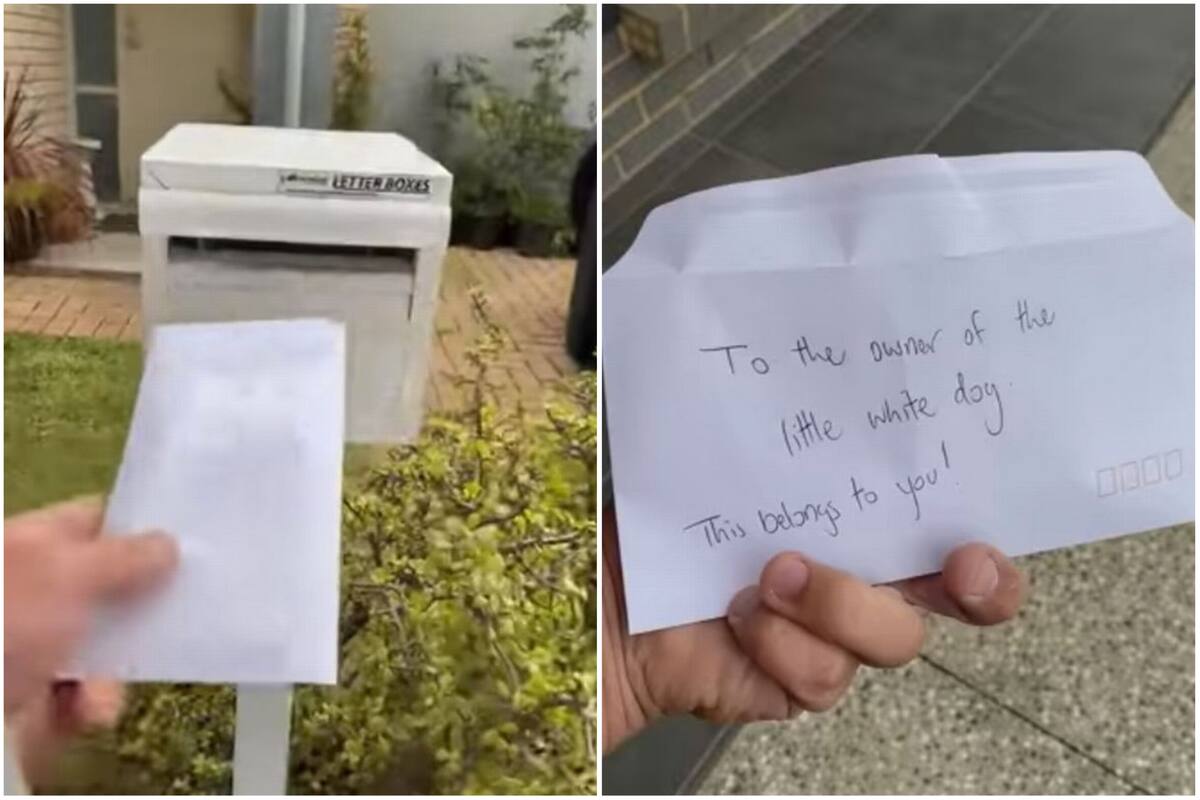 LETTER BOXES
To the owner of the
little white dog.
This belongs to you!